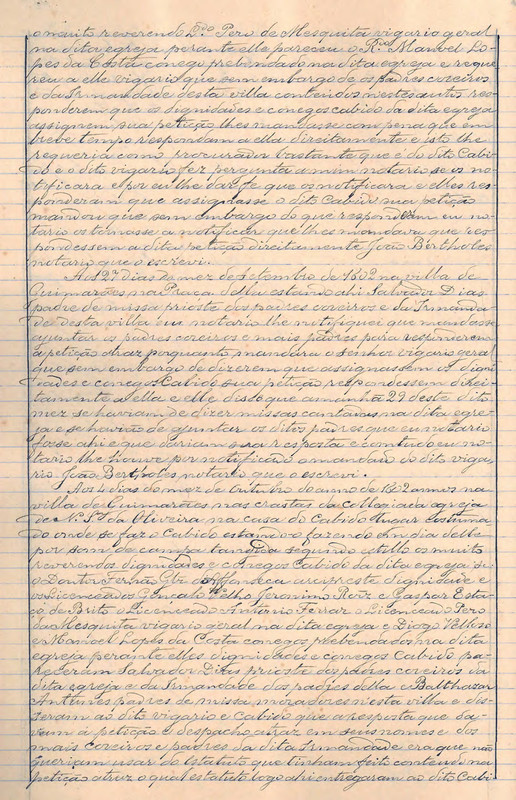 o muito reverendo D.or Pero de Mesquita vigario geral
na dita egreja perante elle pareceu o R.do Manoel Lo-
pes da Costa conego prebendado na dita egreja e reque
reu a elle vigario que sem embargo de os padres coreiros
e da Irmandade desta villa contendos nestes autos res-
ponderem que os dignidades e conegos cabido da dita egreja
assignem sua petição lhes mandasse com pena que em
breve tempo respondam a ella direitamente e isto lhe
requeria como procurador bastante que é do dito Cabi-
do e o dito vigario fez pergunta a mim notario se os no-
tificara e por eu lhe dar fé que os notificara e elles res-
ponderam que assignasse o dito Cabido sua petição
mandou que sem embargo do que respondem eu no-
tario os tornasse a notificar que lhes mandava que res-
pondessem a dita petição direitamente João Bertholes
notario que o escrevi.
Aos 27 dias do mez de Setembro de 1602 na villa de
Guimarães na Praça della estando ahi Salvador Dias
padre de missa prioste dos padres coreiros e da Irmanda
de desta villa eu notario lhe notifiquei que mandasse
ajuntar os padres coreiros e mais padres para responderem
á petição atraz porquanto mandara o senhor vigario geral
que sem embargo de dizerem que assignassem os digni
dades e conegos Cabido sua petição respondessem direi-
tamente a ella e elle disse que amanhã 29 deste dito
mez se haviam de dizer missas cantadas na dita egre-
ja e se havião de ajuntar os ditos padres que eu notario
fosse ahi e que dariam sua resposta e comtudo eu no-
tario lhe houve por notificado o mandado do dito viga-
rio. João Bertholes notario que o escrevi.
Aos 4 dias do mez de Outubro do anno de 1602 annos na
villa de Guimarães nas crastas da Collegiada egreja
de N. Sr.a da Oliveira na casa do Cabido lugar costuma
do onde se faz o Cabido estando o fazendo em dia delle
por som de campa tangida segundo estillo os muito
reverendos dignidades e Conegos Cabido da dita egreja se
o Doutor Fernão Glz da Fonseca arcipreste dignidade e
os Licenceados Gonçalo Velho Jeronimo Roiz e Gaspar Esta-
ço de Brito o Licenceado Antonio Ferraz o Licenceado Pero
da Mesquita vigario geral na dita egreja e Diogo Velloso
e Manoel Lopes da Costa conegos prebendados na dita
egreja perante elles dignidades e conegos Cabido pa-
receram Salvador Dias prioste dos padres coreiros da
dita egreja e da Irmandade dos padres della e Balthasar
Antunes padres de missa moradores n'esta villa e dis-
seram ao dito vigario e Cabido que a resposta que da-
vam á petição e despacho atraz em seus nomes e dos
mais coreiros e padres da dita Irmandade era que não
queriam usar do Estatuto que tinham feito contendo na
petição atraz o qual estatuto logo ahi entregaram ao dito Cabi-